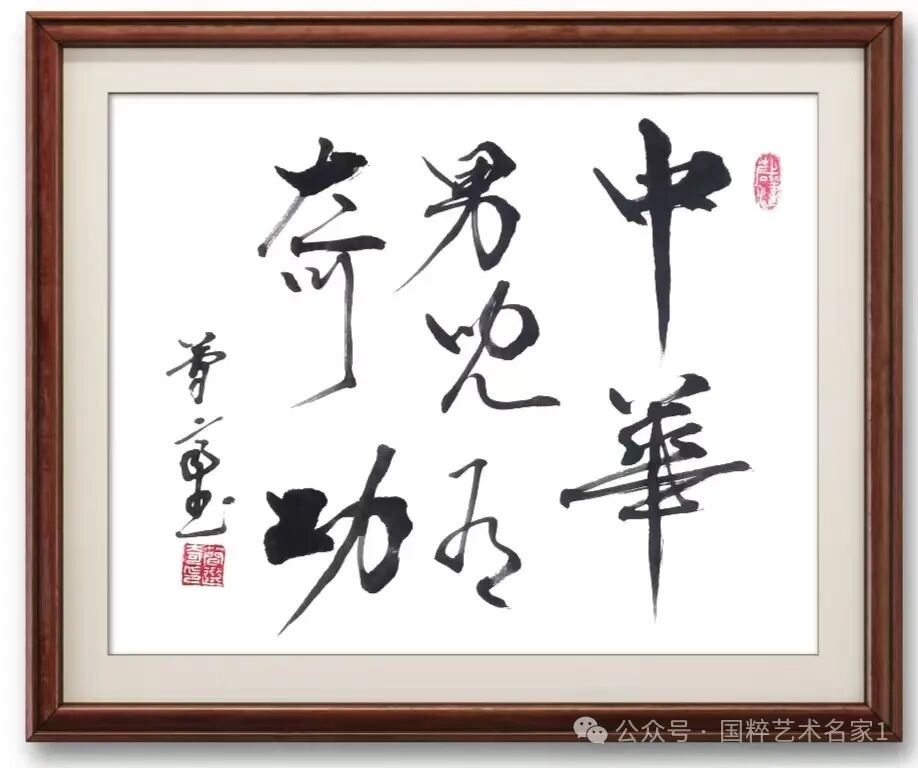 中華
男兒有
奇功
公众号 · 国粹艺术名家1